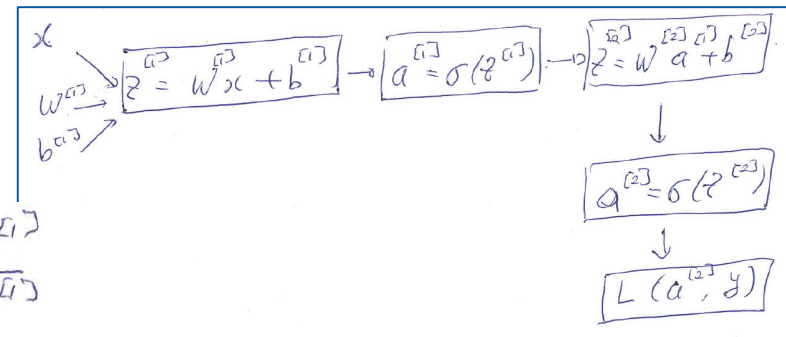 x
W^[1]
b^[1]
z^[1] = W^[1]x + b^[1]
a^[1] = σ(z^[1])
z^[2] = W^[2] a^[1] + b^[2]
a^[2] = σ(z^[2])
L(a^[2], y)
[1]
[1]